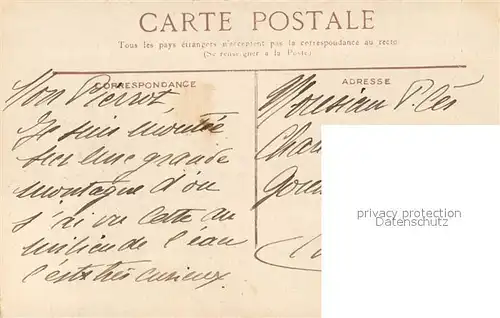 CARTE POSTALE
Tous les pays étrangers n'acceptent pas la correspondance au recto
(Se renseigner à la Poste)
CORRESPONDANCE
ADRESSE
Mon Pierrot,
Je suis montée
sur une grande
montagne d'ou
j'ai vu Cette au
milieu de l'eau
c'est très curieux.
Monsieur P.
privacy protection
Datenschutz